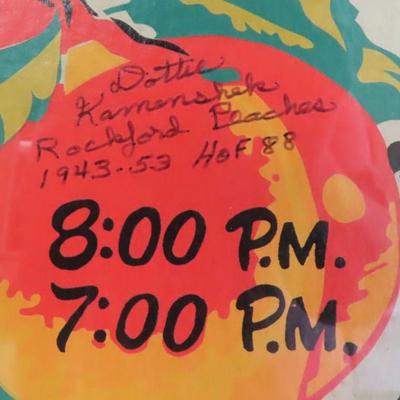 Dottie
Kamenshek
Rockford Peaches
1943-53 HoF 88
8:00 P.M.
7:00 P.M.